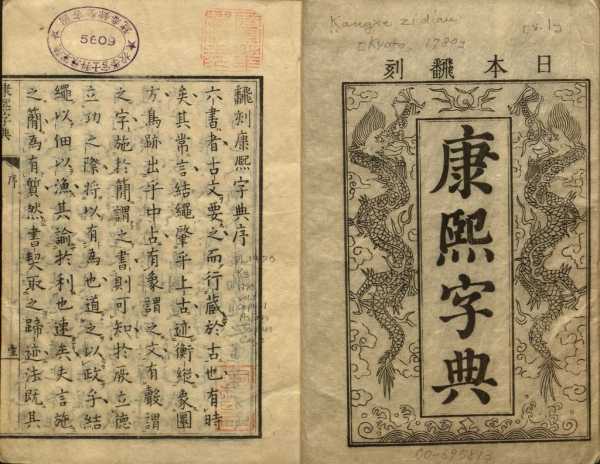 Kangxi zidian
日本飜刻
康熙字典
00-695813
飜刻康熙字典序
六書者古文要之而行藏於古也有時
矣其常言結繩肇乎上古迹衡縱象圓
方鳥跡出乎中古有象謂之文有聲謂
之字施於簡謂之書則可知於厥立德
立功之際將以有為也道之以政乎結
繩以佃以漁其諭於利也速矣夫言施
之簡為有質然書契取之蹄迹法既其
康熙字典
序
壹
5609